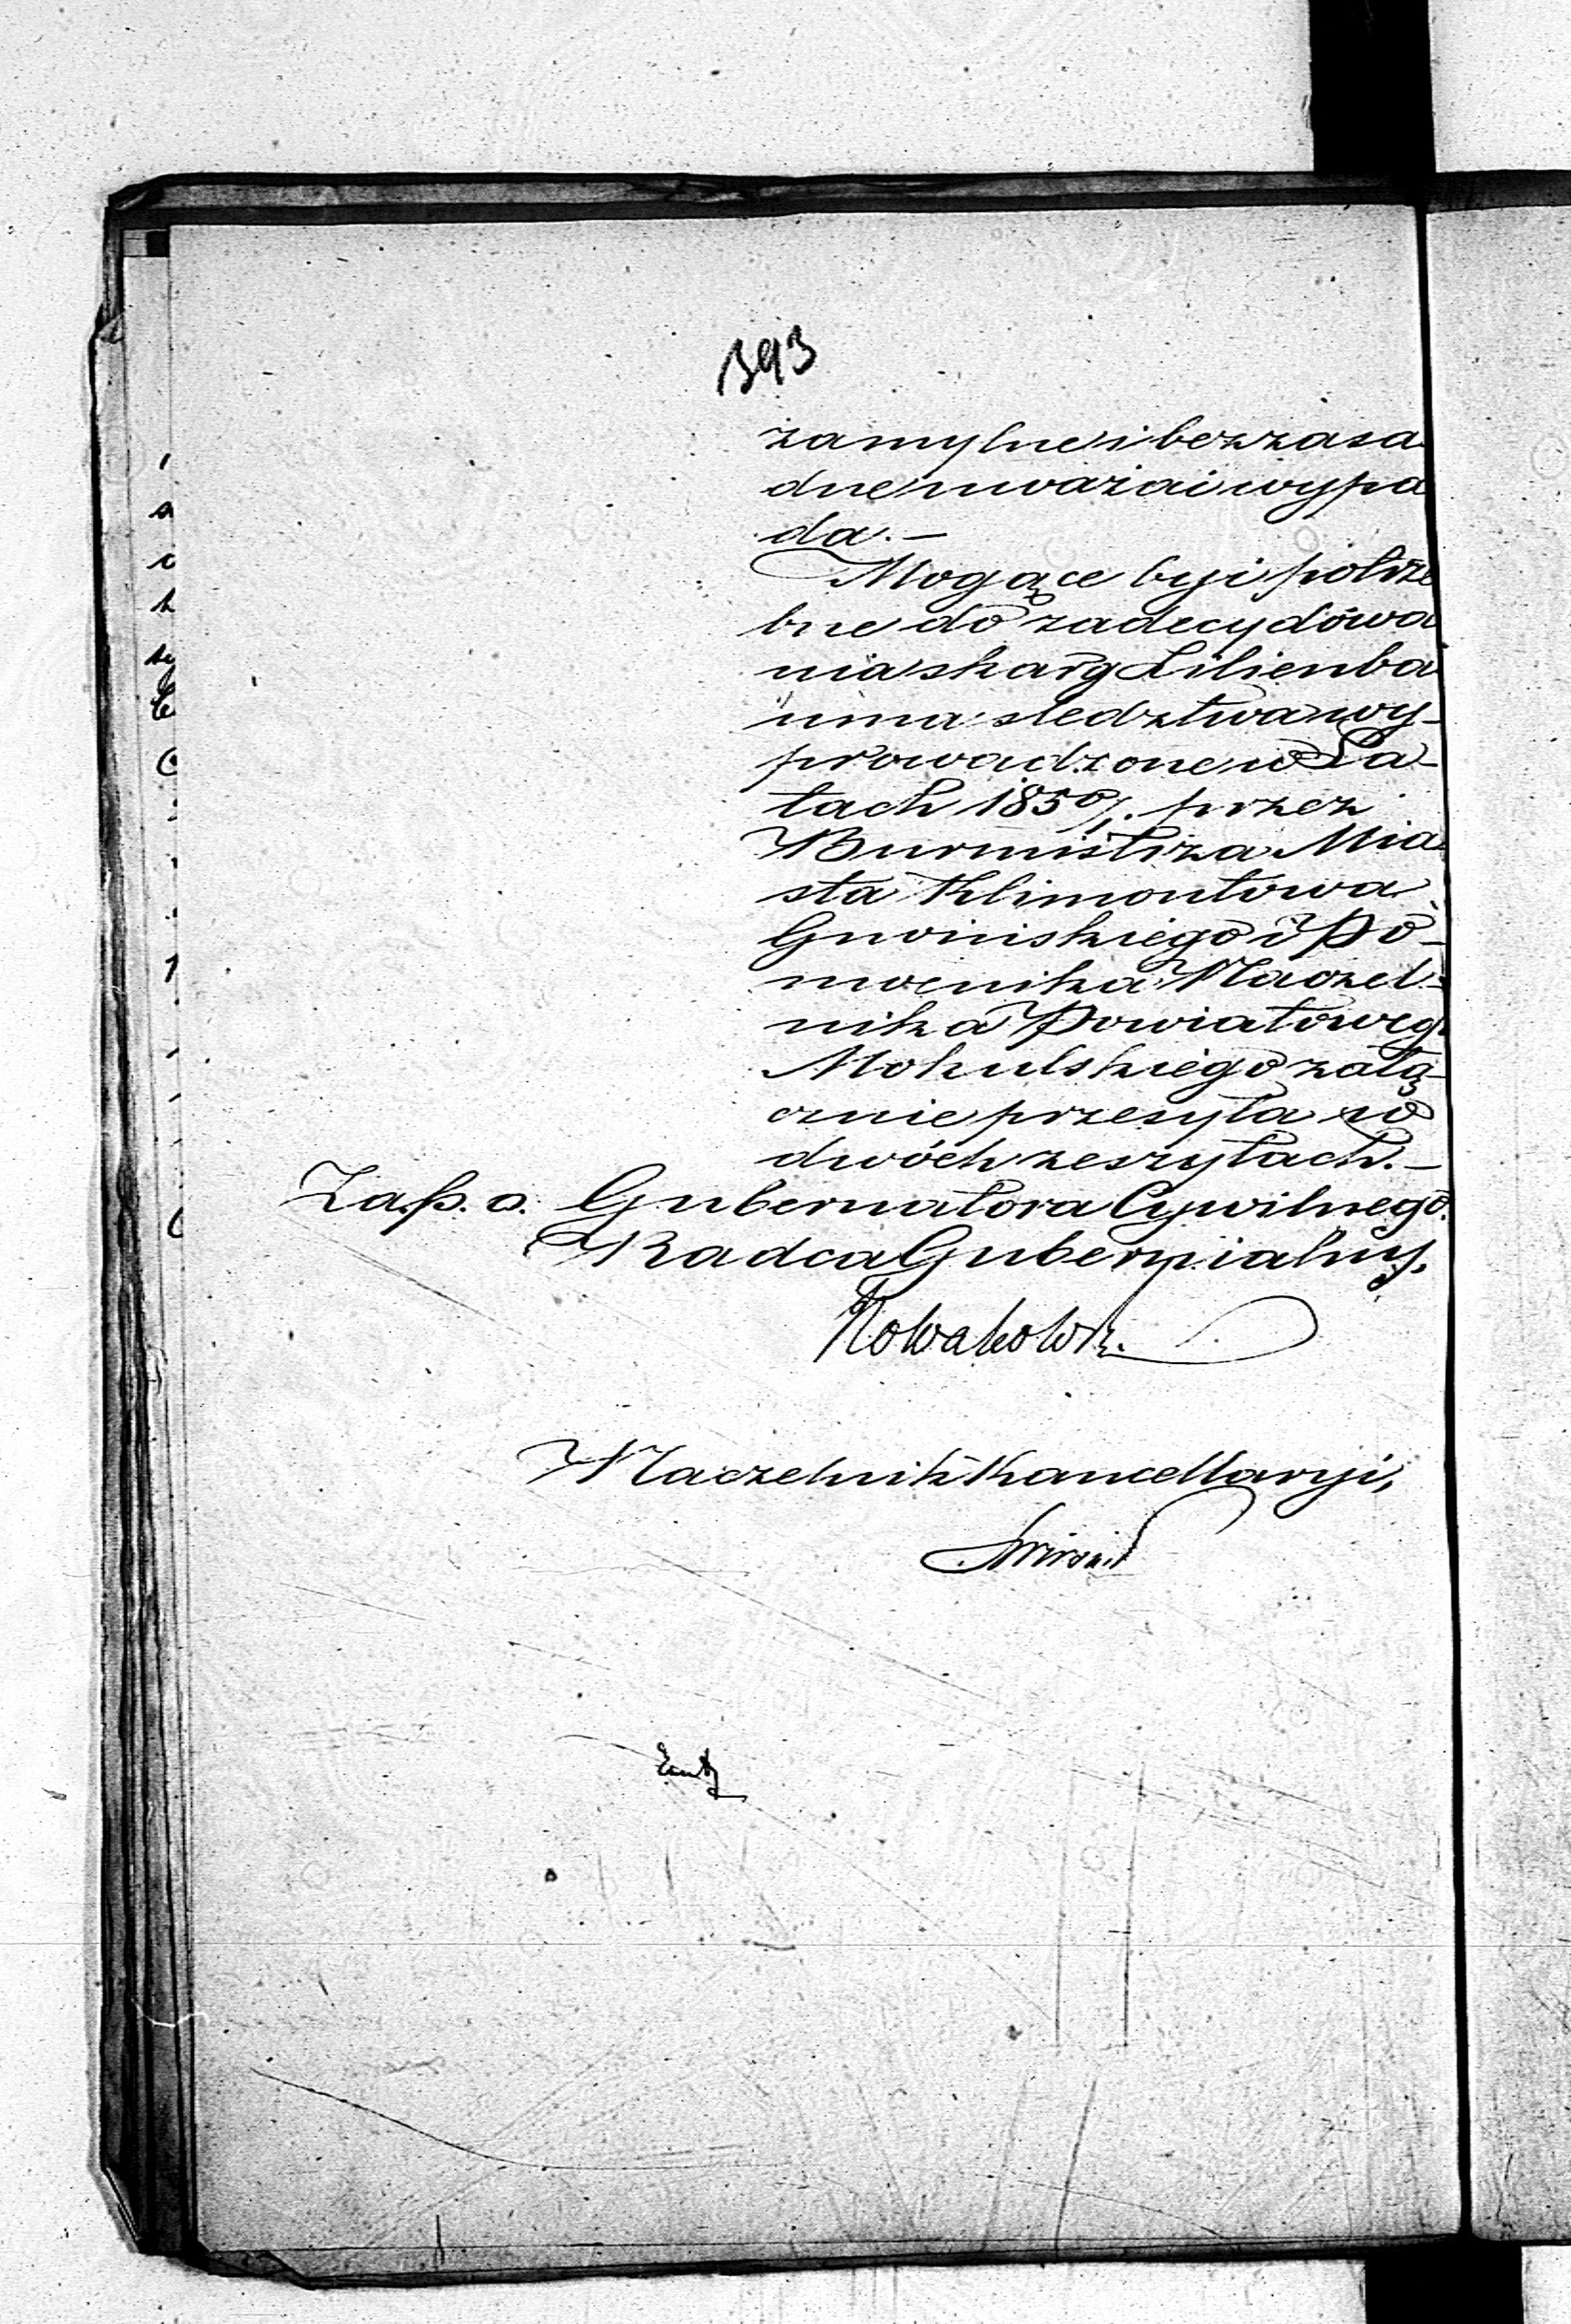 393
za mylne i bezzasa
dne uważać wypa
da. —
Mogące być potrze
bne do zadecydowa
nia skarg Lilienba
uma śledztwa wy-
prowadzone w La-
tach 1850/1. przez
Burmistrza Mia
sta Klimontowa
Gnoińskiego i Po-
mocnika Naczel-
nika Powiatoweg
Mokulskiego załą-
cznie przesyła w
dwóch zeszytach. —
Za p. o. Gubernatora Cywilnego.
Radca Gubernialny,
Nowakowsk.
Naczelnik Kancellaryi,